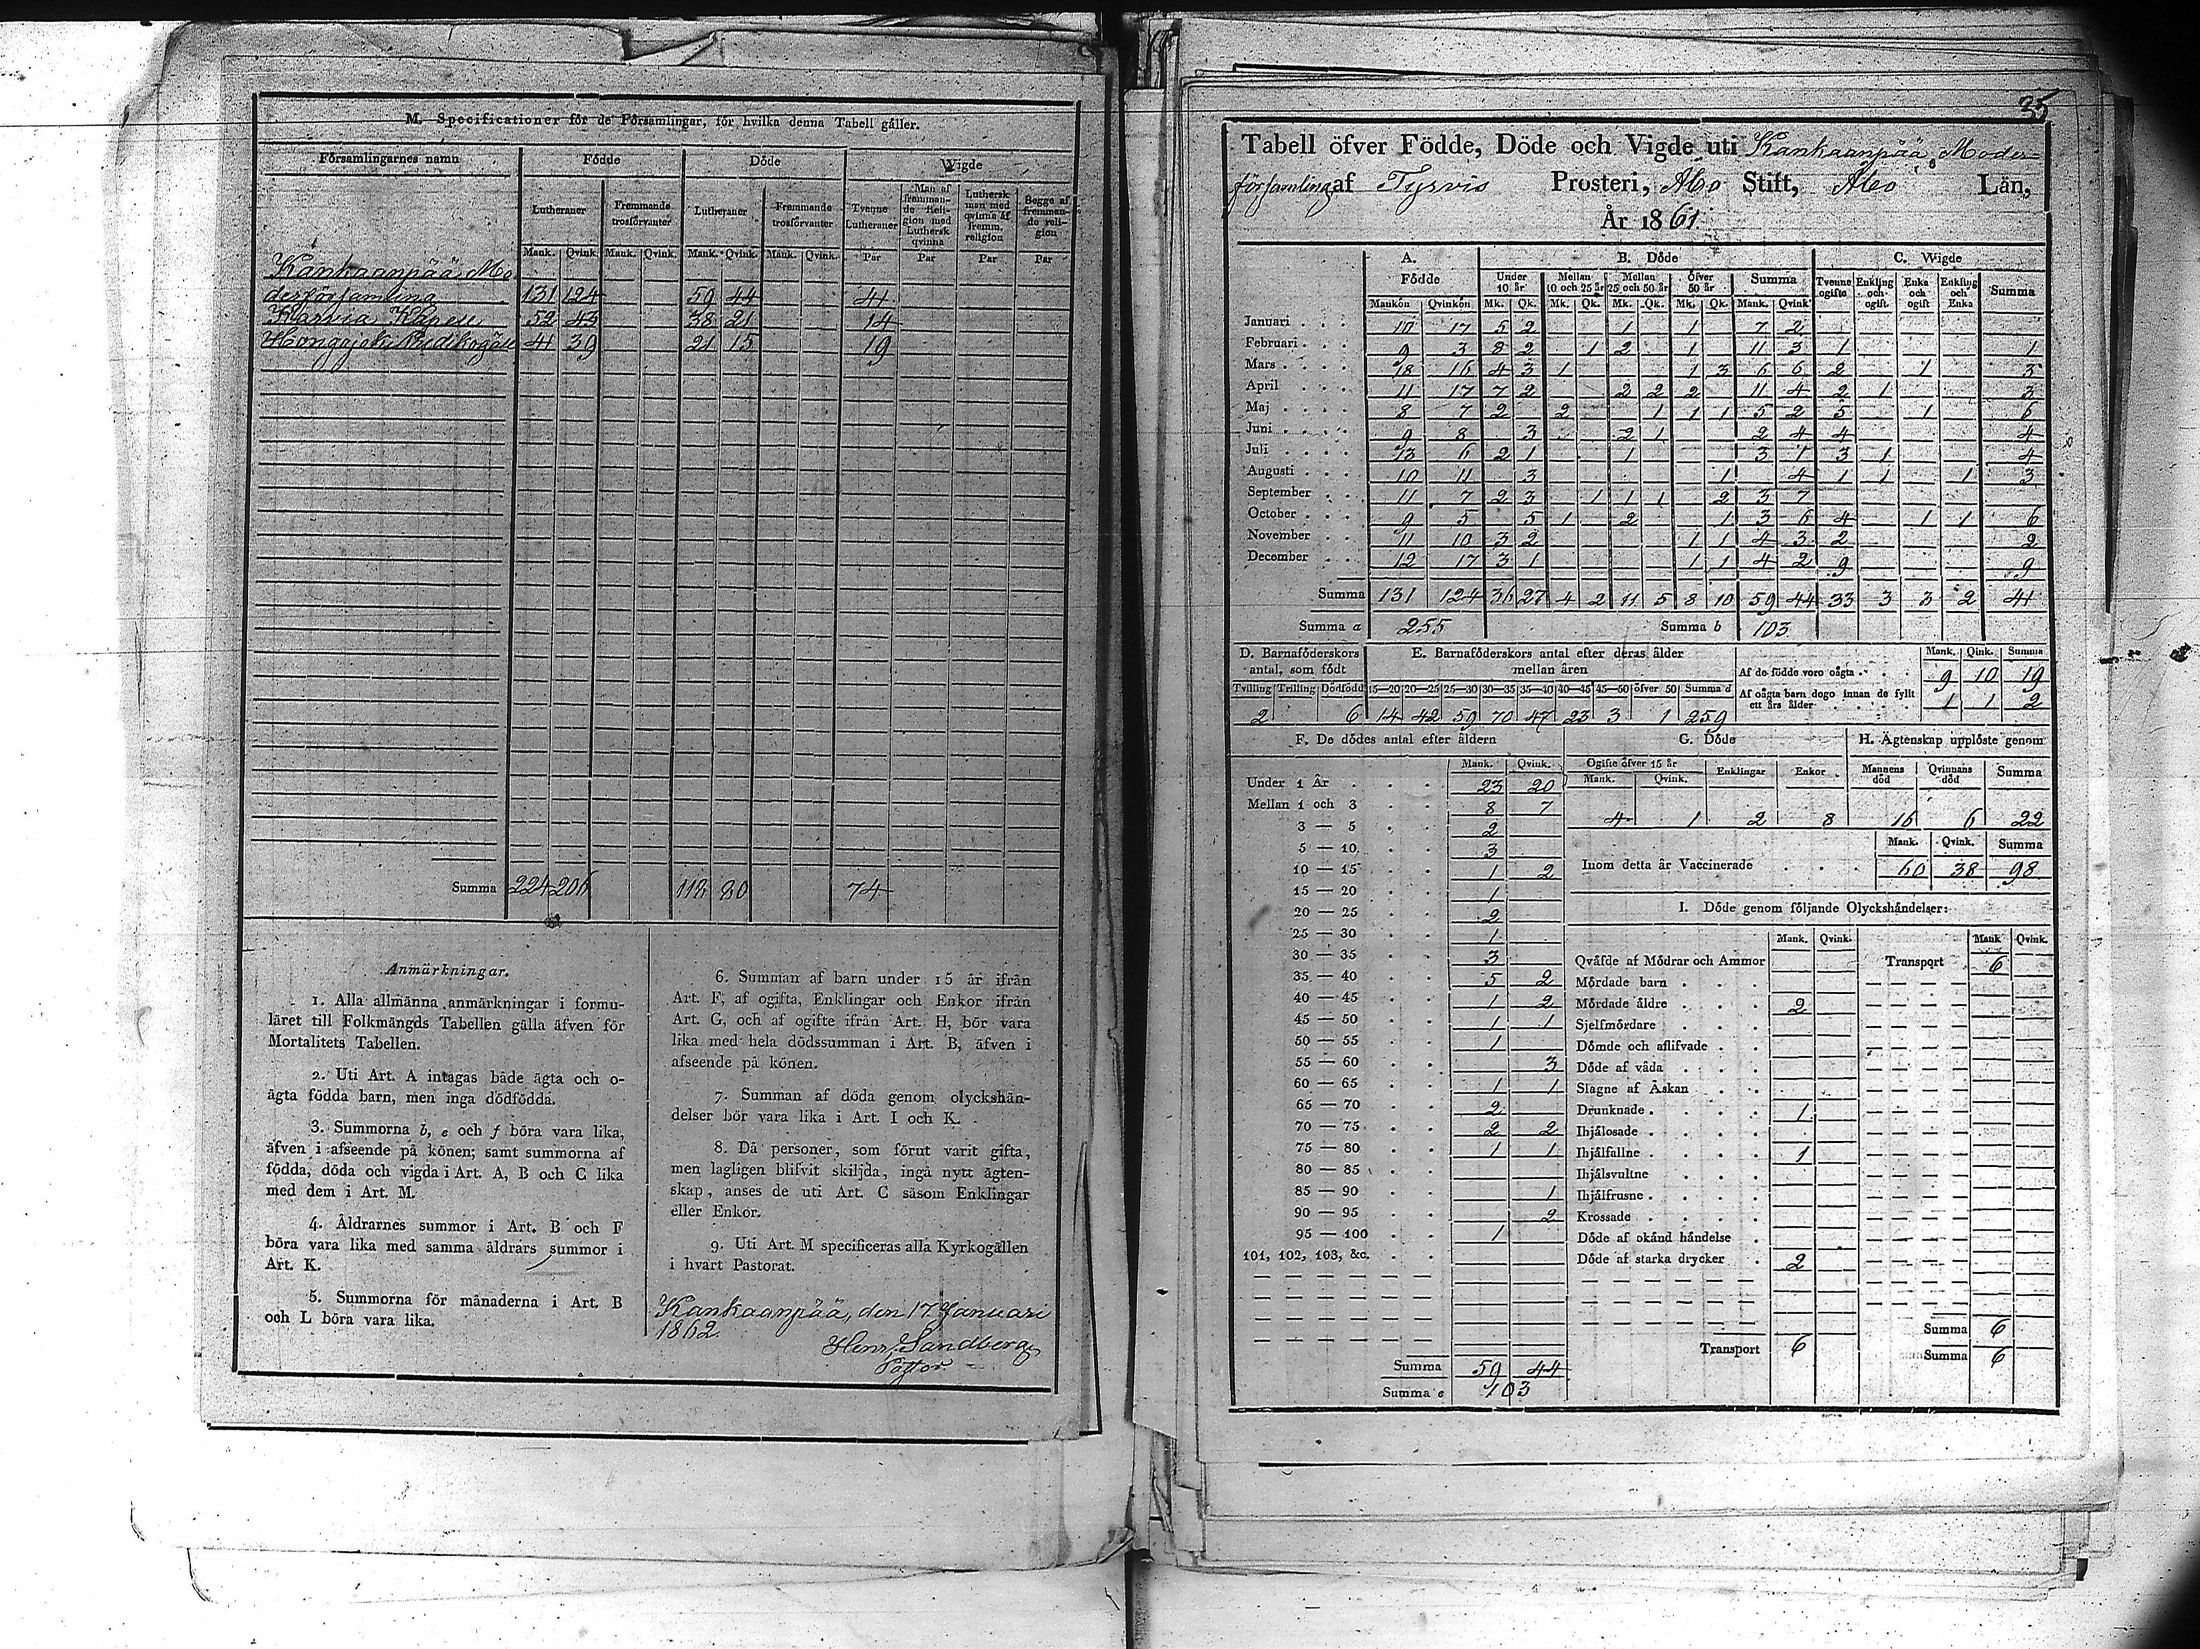 M. Specificationer för de Församlingar, för hvilka denna Tabell gäller.
Församlingarnes namn Födde Döde Wigde
Lutheraner Fremmande trosförvanter Lutheraner Fremmande trosförvanter Tvenne Lutheraner Man af fremmande Religion med Luthersk qvinna Luthersk man med qvinna af fremm. religion Begge af fremmande religion
Mank. Qvink. Mank. Qvink. Mank. Qvink. Mank. Qvink. Par Par Par Par
Kankaanpää Mo
derförsamling 131 124 59 44 41
Karvia Kapell 52 43 38 21 14
Hongojoki Predikogäll 41 39 21 15 19
Summa 224 206 118 80 74
Anmärkningar.
1. Alla allmänna anmärkningar i formu-
läret till Folkmängds Tabellen gälla äfven för
Mortalitets Tabellen.
2. Uti Art. A intagas både ägta och o-
ägta födda barn, men inga dödfödda.
3. Summorna b, e och f böra vara lika,
äfven i afseende på könen; samt summorna af
födda, döda och vigda i Art. A, B och C lika
med dem i Art. M.
4. Åldrarnes summor i Art. B och F
böra vara lika med samma åldrars summor i
Art. K.
5. Summorna för månaderna i Art. B
och L böra vara lika.
6. Summan af barn under 15 år ifrån
Art. F, af ogifta, Enklingar och Enkor ifrån
Art. G, och af ogifte ifrån Art. H, bör vara
lika med hela dödssumman i Art. B, äfven i
afseende på könen.
7. Summan af döda genom olyckshän-
delser bör vara lika i Art. I och K.
8. Då personer, som förut varit gifta,
men lagligen blifvit skiljda, ingå nytt ägten-
skap, anses de uti Art. C såsom Enklingar
eller Enkor.
9. Uti Art. M specificeras alla Kyrkogällen
i hvart Pastorat.
Kankaanpää, den 17 Januari
1862.
Henr. Sandberg
Pastor
35
Tabell öfver Födde, Döde och Vigde uti Kankaanpää Moder-
församling af Tyrvis Prosteri, Åbo Stift, Åbo Län,
År 1861.
A. Födde B. Döde C. Wigde
Under 10 år Mellan 10 och 25 år Mellan 25 och 50 år Öfver 50 år Summa Tvenne ogifte Enkling och ogift Enka och ogift Enkling och Enka Summa
Mankön Qvinkön Mk. Qk. Mk. Qk. Mk. Qk. Mk. Qk. Mank. Qvink.
Januari 10 17 5 2 1 1 7 2
Februari 9 3 8 2 1 2 1 11 3 1 1
Mars 18 16 4 3 1 1 3 6 6 2 1 3
April 11 17 7 2 2 2 2 11 4 2 1 3
Maj 8 7 2 2 1 1 1 5 2 5 1 6
Juni 9 8 3 2 1 2 4 4 4
Juli 13 6 2 1 1 3 1 3 1 4
Augusti 10 11 3 1 4 1 1 1 3
September 11 7 2 3 1 1 1 2 3 7
October 9 5 5 1 2 1 3 6 4 1 1 6
November 11 10 3 2 1 1 4 3 2 2
December 12 17 3 1 1 1 4 2 9 9
Summa 131 124 36 27 4 2 11 5 8 10 59 44 33 3 3 2 41
Summa a 255 Summa b 103
D. Barnaföderskors antal, som födt
Tvilling Trilling Dödfödd
2 6
E. Barnaföderskors antal efter deras ålder mellan åren
15—20 20—25 25—30 30—35 35—40 40—45 45—50 öfver 50 Summa d
14 42 59 70 47 23 3 1 259
Mank. Qink. Summa
Af de födde voro oägta 9 10 19
Af oägta barn dogo innan de fyllt ett års ålder 1 1 2
F. De dödes antal efter åldern
Mank. Qvink.
Under 1 År 23 20
Mellan 1 och 3 8 7
3 — 5 2
5 — 10 3
10 — 15 1 2
15 — 20 1
20 — 25 2
25 — 30 1
30 — 35 3
35 — 40 5 2
40 — 45 1 2
45 — 50 1 1
50 — 55 1
55 — 60 3
60 — 65 1 1
65 — 70 2
70 — 75 2 2
75 — 80 1 1
80 — 85
85 — 90 1
90 — 95 2
95 — 100 1
101, 102, 103, &c.
Summa 59 44
Summa e 103
G. Döde
Ogifte öfver 15 år Enklingar Enkor
Mank. Qvink.
4 1 2 8
H. Ägtenskap upplöste genom
Mannens död Qvinnans död Summa
16 6 22
Mank. Qvink. Summa
Inom detta år Vaccinerade 60 38 98
I. Döde genom följande Olyckshändelser:
Mank. Qvink. Mank Qvink.
Qväfde af Mödrar och Ammor Transport 6
Mördade barn
Mördade äldre 2
Sjelfmördare
Dömde och aflifvade
Döde af våda
Slagne af Åskan
Drunknade 1
Ihjälosade
Ihjälfallne 1
Ihjälsvultne
Ihjälfrusne
Krossade
Döde af okänd händelse
Döde af starka drycker 2
Transport 6
Summa 6
Summa 6